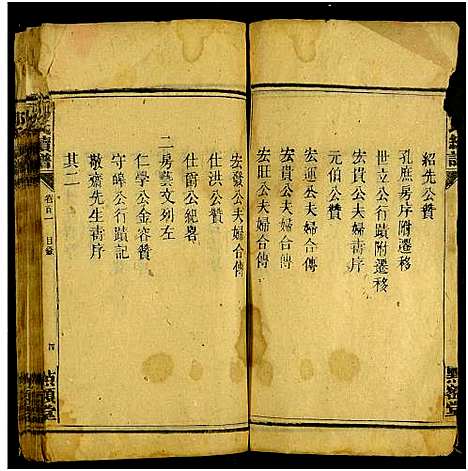 紹先公贊
孔庶房序附遷移
世立公行蹟附遷移
宏貴公夫婦壽序
元伯公贊
宏運公夫婦合傳
宏貴公夫婦合傳
宏旺公夫婦合傳
宏發公夫婦合傳
仕洪公贊
仕爵公紀畧
二房藝文列左
仁學公金容贊
守暐公行蹟記
敬齋先生壽序
其二
氏續譜
卷首一
目錄
四